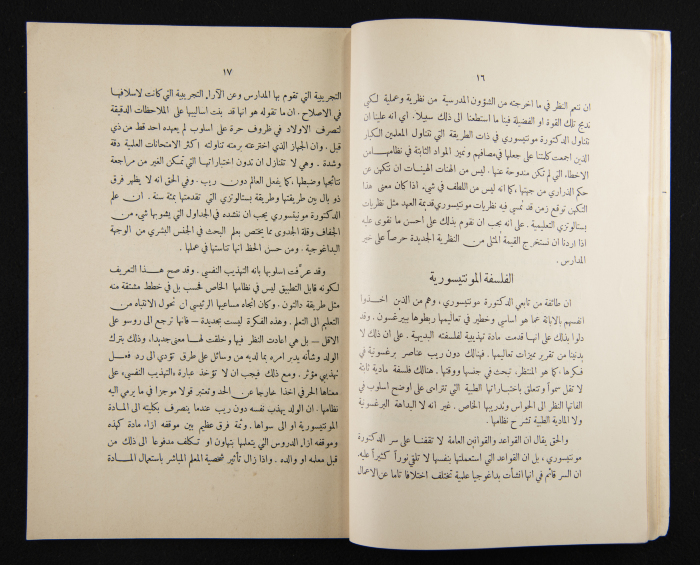 ١٦
ان ننعم النظر في ما اخرجته من الشؤون المدرسية من نظرية وعملية لكي
ندمج تلك القوة او الفضيلة فينا ما استطعنا الى ذلك سبيلا. اي انه علينا ان
نتناول الدكتورة مونتيسوري في ذات الطريقة التي نتناول المعلمين الكبار
الذين اجمعت كلمتنا على جعلها في مصافهم ونميز المواد الثابتة في نظامها من
الاخطاء التي لم تكن مندوحة عنها. ليس من الهنات الهينات ان نتكهن عن
حكم الذراري من جيتها، كما انه ليس من اللطف في شيء. اذا كان معنى هذا
التكهن توقع زمن قد تمسي فيه نظريات مونتيسوري قديمة العهد مثل نظريات
بستالوتزي التعليمية. على انه يجب ان نقوم بذلك على احسن ما نقوى عليه
اذا اردنا ان نستخرج القيمة المثلى من النظرية الجديدة حرصاً على خير
المدارس.
الفلسفة المونتيسورية
ان طائفة من تابعي الدكتورة مونتيسوري، وهم من الذين اخذوا
انفسهم بالابانة عما هو اساسي وخطير في تعاليمها ربطوها ببيرغسون. وقد
دلوا بذلك على انها قدمت مادة تهذيبية لفلسفته البديهية. على ان ذلك لا
يدنينا من تقرير مميزات تعاليمها. فهنالك دون ريب عناصر برغسونية في
فكرها، كما هو المنتظر، تبحث في جنسها ووقتها. هنالك فلسفة مادية ثابتة
لا تقل سمواً وتتعلق باختباراتها الطبية التي تترامى على اوضح اسلوب في
الفاتها النظر الى الحواس وتدريبها الخاص. غير انه لا البداهة البرغسونية
ولا المادية الطبية تشرح نظامها.
والحق يقال ان القواعد والقوانين العامة لا تقفنا على سر الدكتورة
مونتيسوري، بل ان القواعد التي استعملتها بنفسها لا تلقي نوراً كثيراً عليه.
ان السر قائم في انها انشأت بداغوجيا علمية تختلف اختلافا تاما عن الاعمال
١٧
التجريبية التي تقوم بها المدارس وعن الآراء التجريبية التي كانت لاسلافها
في الاصلاح. ان ما تقوله هو انها قد بنت اساليبها على الملاحظات الدقيقة
لتصرف الاولاد في ظروف حرة على اسلوب لم يعهده احد قط من ذي
قبل. وان الجهاز الذي اخترعته برمته تناولته اكثر الامتحانات العلمية دقة
وشدة. وهي لا تتنازل ان تدون اختباراتها التي تمكن الغير من مراجعة
نتائجها وضبطها، كما يفعل العالم دون ريب. وفي الحق انه لا يظهر فرق
ذو بال بين طريقتها وطريقة بستالوتزي التي تقدمتها بمئة سنة. ان علم
الدكتورة مونتيسوري يجب ان ننشده في الجداول التي يشوبها شيء من
الجفاف وقلة الجدوى مما يختص بعلم البحث في الجنس البشري من الوجهة
البداغوجية. ومن حسن الحظ انها تناستها في عملها.
وقد عرّفت اسلوبها بانه التهذيب النفسي. وقد صح هذا التعريف
لكونه قابل التطبيق ليس في نظامها الخاص فحسب بل في خطط مشتقة منه
مثل طريقة دالتون. وكان اتجاه مساعيها الرئيسي ان تحول الانتباه من
التعليم الى التعلم. وهذه الفكرة ليست بجديدة — فانها ترجع الى روسو على
الاقل — بل هي اعادت النظر فيها وخلقت لها معنى جديدا، وذلك بترك
الولد وشأنه يدبر امره بما لديه من وسائل على طرق تؤدي الى رد فعل
تهذيبي مؤثر. ومع ذلك فيجب ان لا تؤخذ عبارة «التهذيب النفسي» على
معناها الحرفي اخذا خارجا عن الحد وتعتبر قولا موجزا في ما يرمي اليه
نظامها. ان الولد يهذب نفسه دون ريب عندما ينصرف بكليته الى المادة
المونتيسورية او الى سواها. وثمة فرق عظيم بين موقفه ازاء مادة كهذه
وموقفه ازاء الدروس التي يتعلمها بتهاون او تكلف مدفوعا الى ذلك من
قبل معلمه او والده. واذا زال تأثير شخصية المعلم المباشر باستعمال المادة